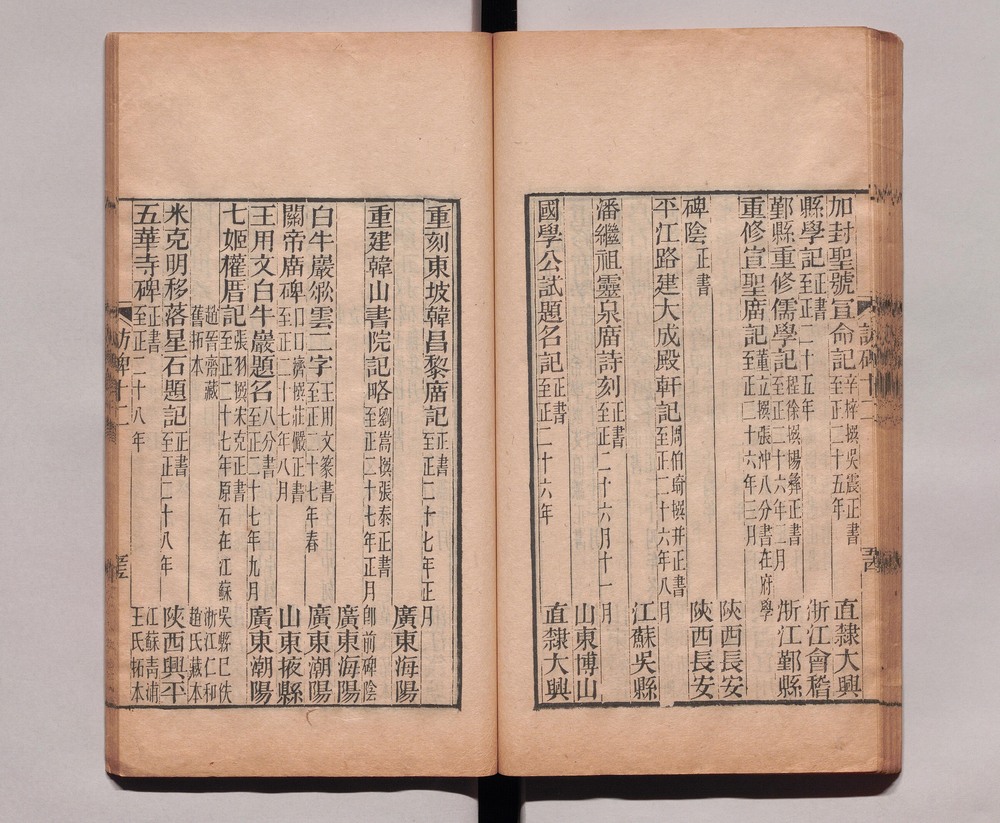 加封聖號宣命記 辛梓撰吳震正書 至正二十五年 直隸大興
縣學記 正書 至正二十五年 浙江會稽
鄞縣重修儒學記 程徐撰楊彝正書 至正二十六年二月 浙江鄞縣
重修宣聖廟記 董立撰張沖八分書在府學 至正二十六年三月 陝西長安
碑陰 正書 陝西長安
平江路建大成殿軒記 周伯琦撰并正書 至正二十六年八月 江蘇吳縣
潘繼祖靈泉廟詩刻 正書 至正二十六月十一月 山東博山
國學公試題名記 正書 至正二十六年 直隸大興
重刻東坡韓昌黎廟記 正書 至正二十七年正月 廣東海陽
重建韓山書院記略 劉嵩撰張泰正書 至正二十七年正月即前碑陰 廣東海陽
白牛巖㱃雲二字 王用文篆書 至正二十七年春 廣東潮陽
關帝廟碑 口口濟撰莊嚴正書 至正二十七年八月 山東掖縣
王用文白牛巖題名 八分書 至正二十七年九月 廣東潮陽
七姬權厝記 張羽撰宋克正書 至正二十七年原石在江蘇吳縣已佚
趙晉齋藏舊拓本 浙江仁和趙氏藏本
米克明移落星石題記 正書 至正二十八年 陝西興平
五華寺碑 正書 至正二十八年 江蘇青浦王氏拓本
訪碑十二